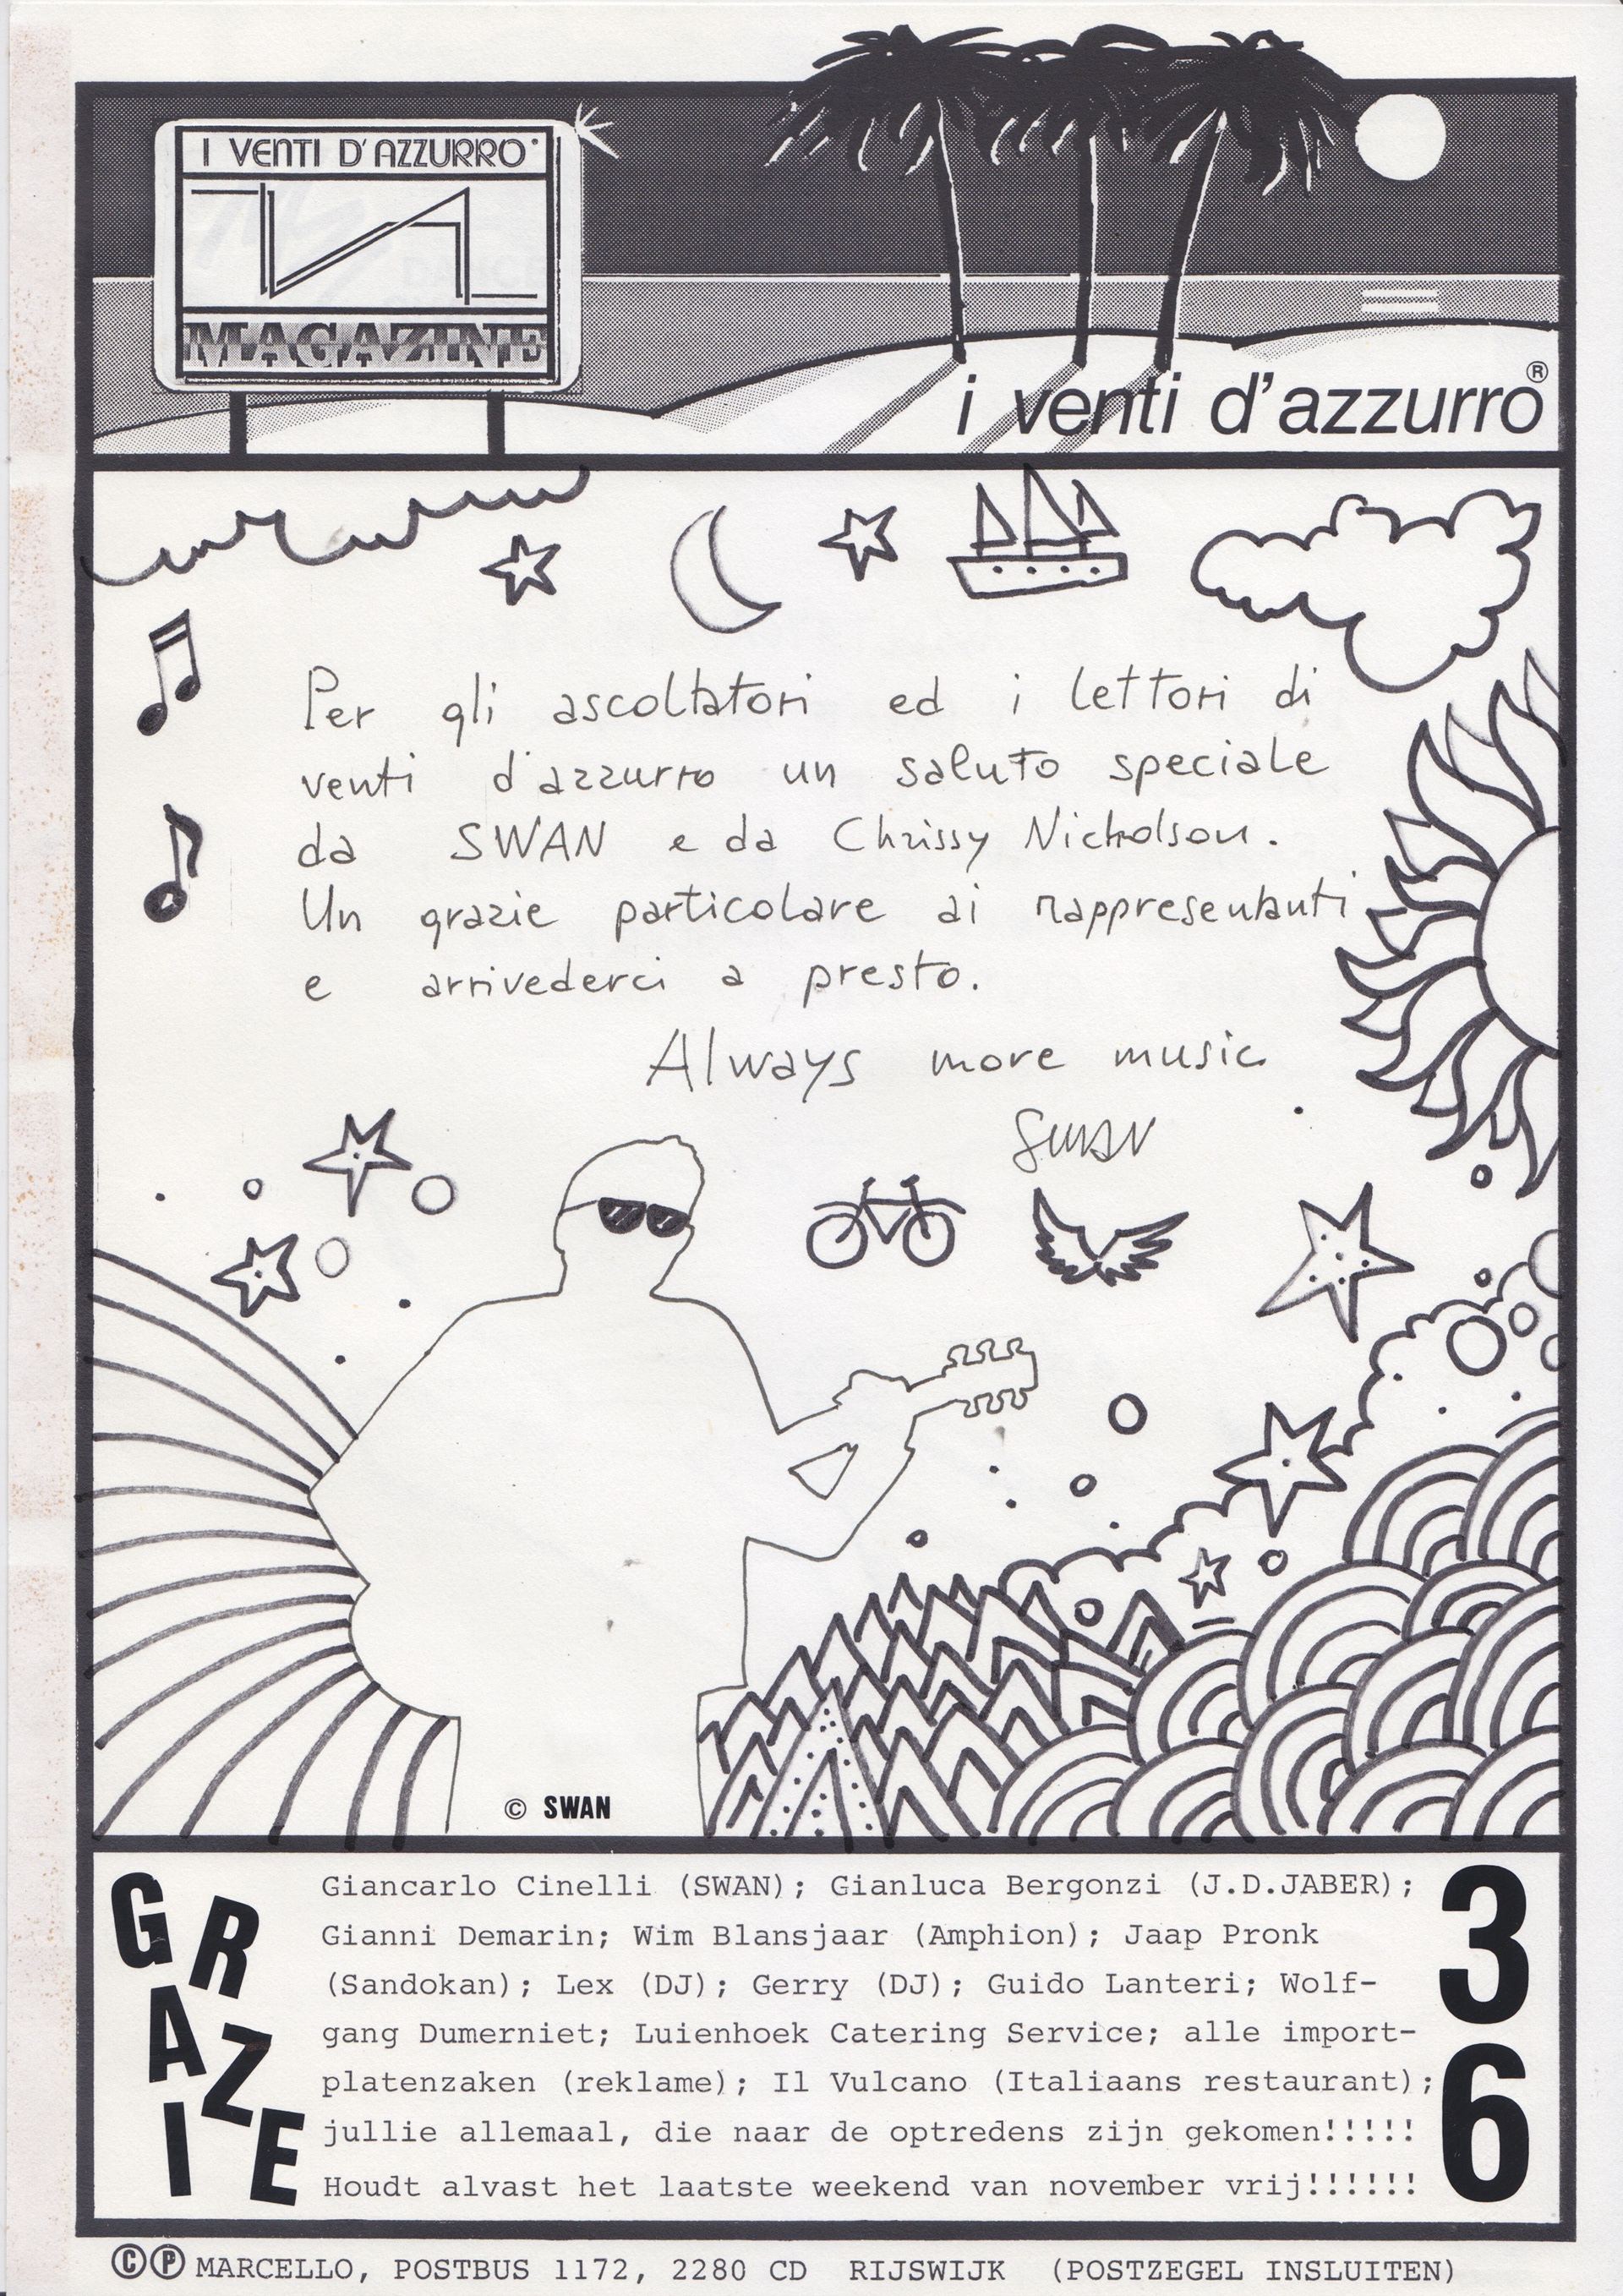 I VENTI D'AZZURRO
MAGAZINE
i venti d'azzurro®
Per gli ascoltatori ed i lettori di
venti d'azzurro un saluto speciale
da SWAN e da Chrissy Nicholson.
Un grazie particolare ai rappresentanti
e arrivederci a presto.
Always more music
SWAN
© SWAN
GRAZIE
Giancarlo Cinelli (SWAN); Gianluca Bergonzi (J.D.JABER);
Gianni Demarin; Wim Blansjaar (Amphion); Jaap Pronk
(Sandokan); Lex (DJ); Gerry (DJ); Guido Lanteri; Wolf-
gang Dumerniet; Luienhoek Catering Service; alle import-
platenzaken (reklame); Il Vulcano (Italiaans restaurant);
jullie allemaal, die naar de optredens zijn gekomen!!!!!
Houdt alvast het laatste weekend van november vrij!!!!!!
36
©℗ MARCELLO, POSTBUS 1172, 2280 CD RIJSWIJK (POSTZEGEL INSLUITEN)